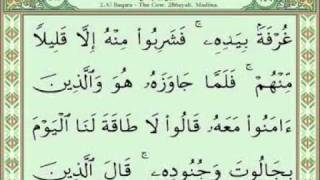 2.Al Baqara - The Cow. 286ayah. Madina.
غُرْفَةًۢ بِيَدِهِۦ ۚ فَشَرِبُوا۟ مِنْهُ إِلَّا قَلِيلًا
مِّنْهُمْ ۚ فَلَمَّا جَاوَزَهُۥ هُوَ وَٱلَّذِينَ
ءَامَنُوا۟ مَعَهُۥ قَالُوا۟ لَا طَاقَةَ لَنَا ٱلْيَوْمَ
بِجَالُوتَ وَجُنُودِهِۦ ۚ قَالَ ٱلَّذِينَ